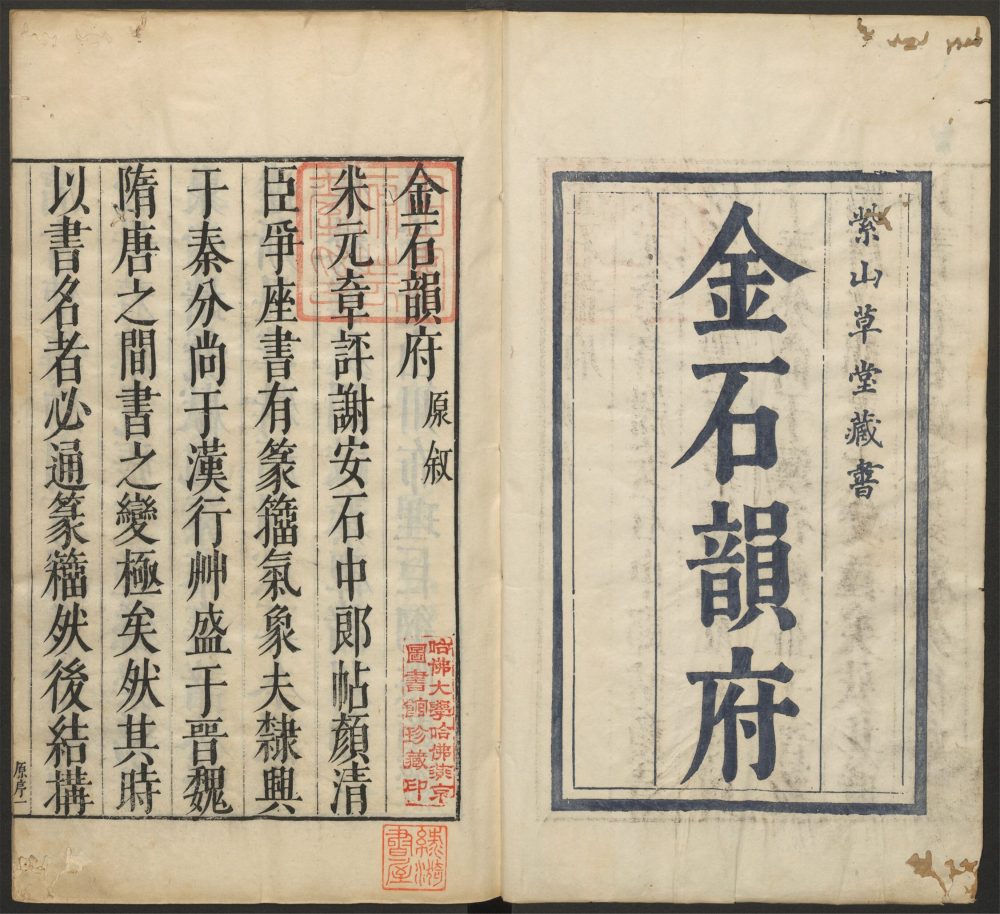 紫山草堂藏書
金石韻府
金石韻府 原敘
米元章評謝安石中郎帖顏清
臣爭座書有篆籀氣象夫隸興
于秦分尚于漢行艸盛于晋魏
隋唐之間書之變極矣然其時
以書名者必通篆籀然後結構
原序一
哈佛大學哈佛燕京
圖書館珍藏印